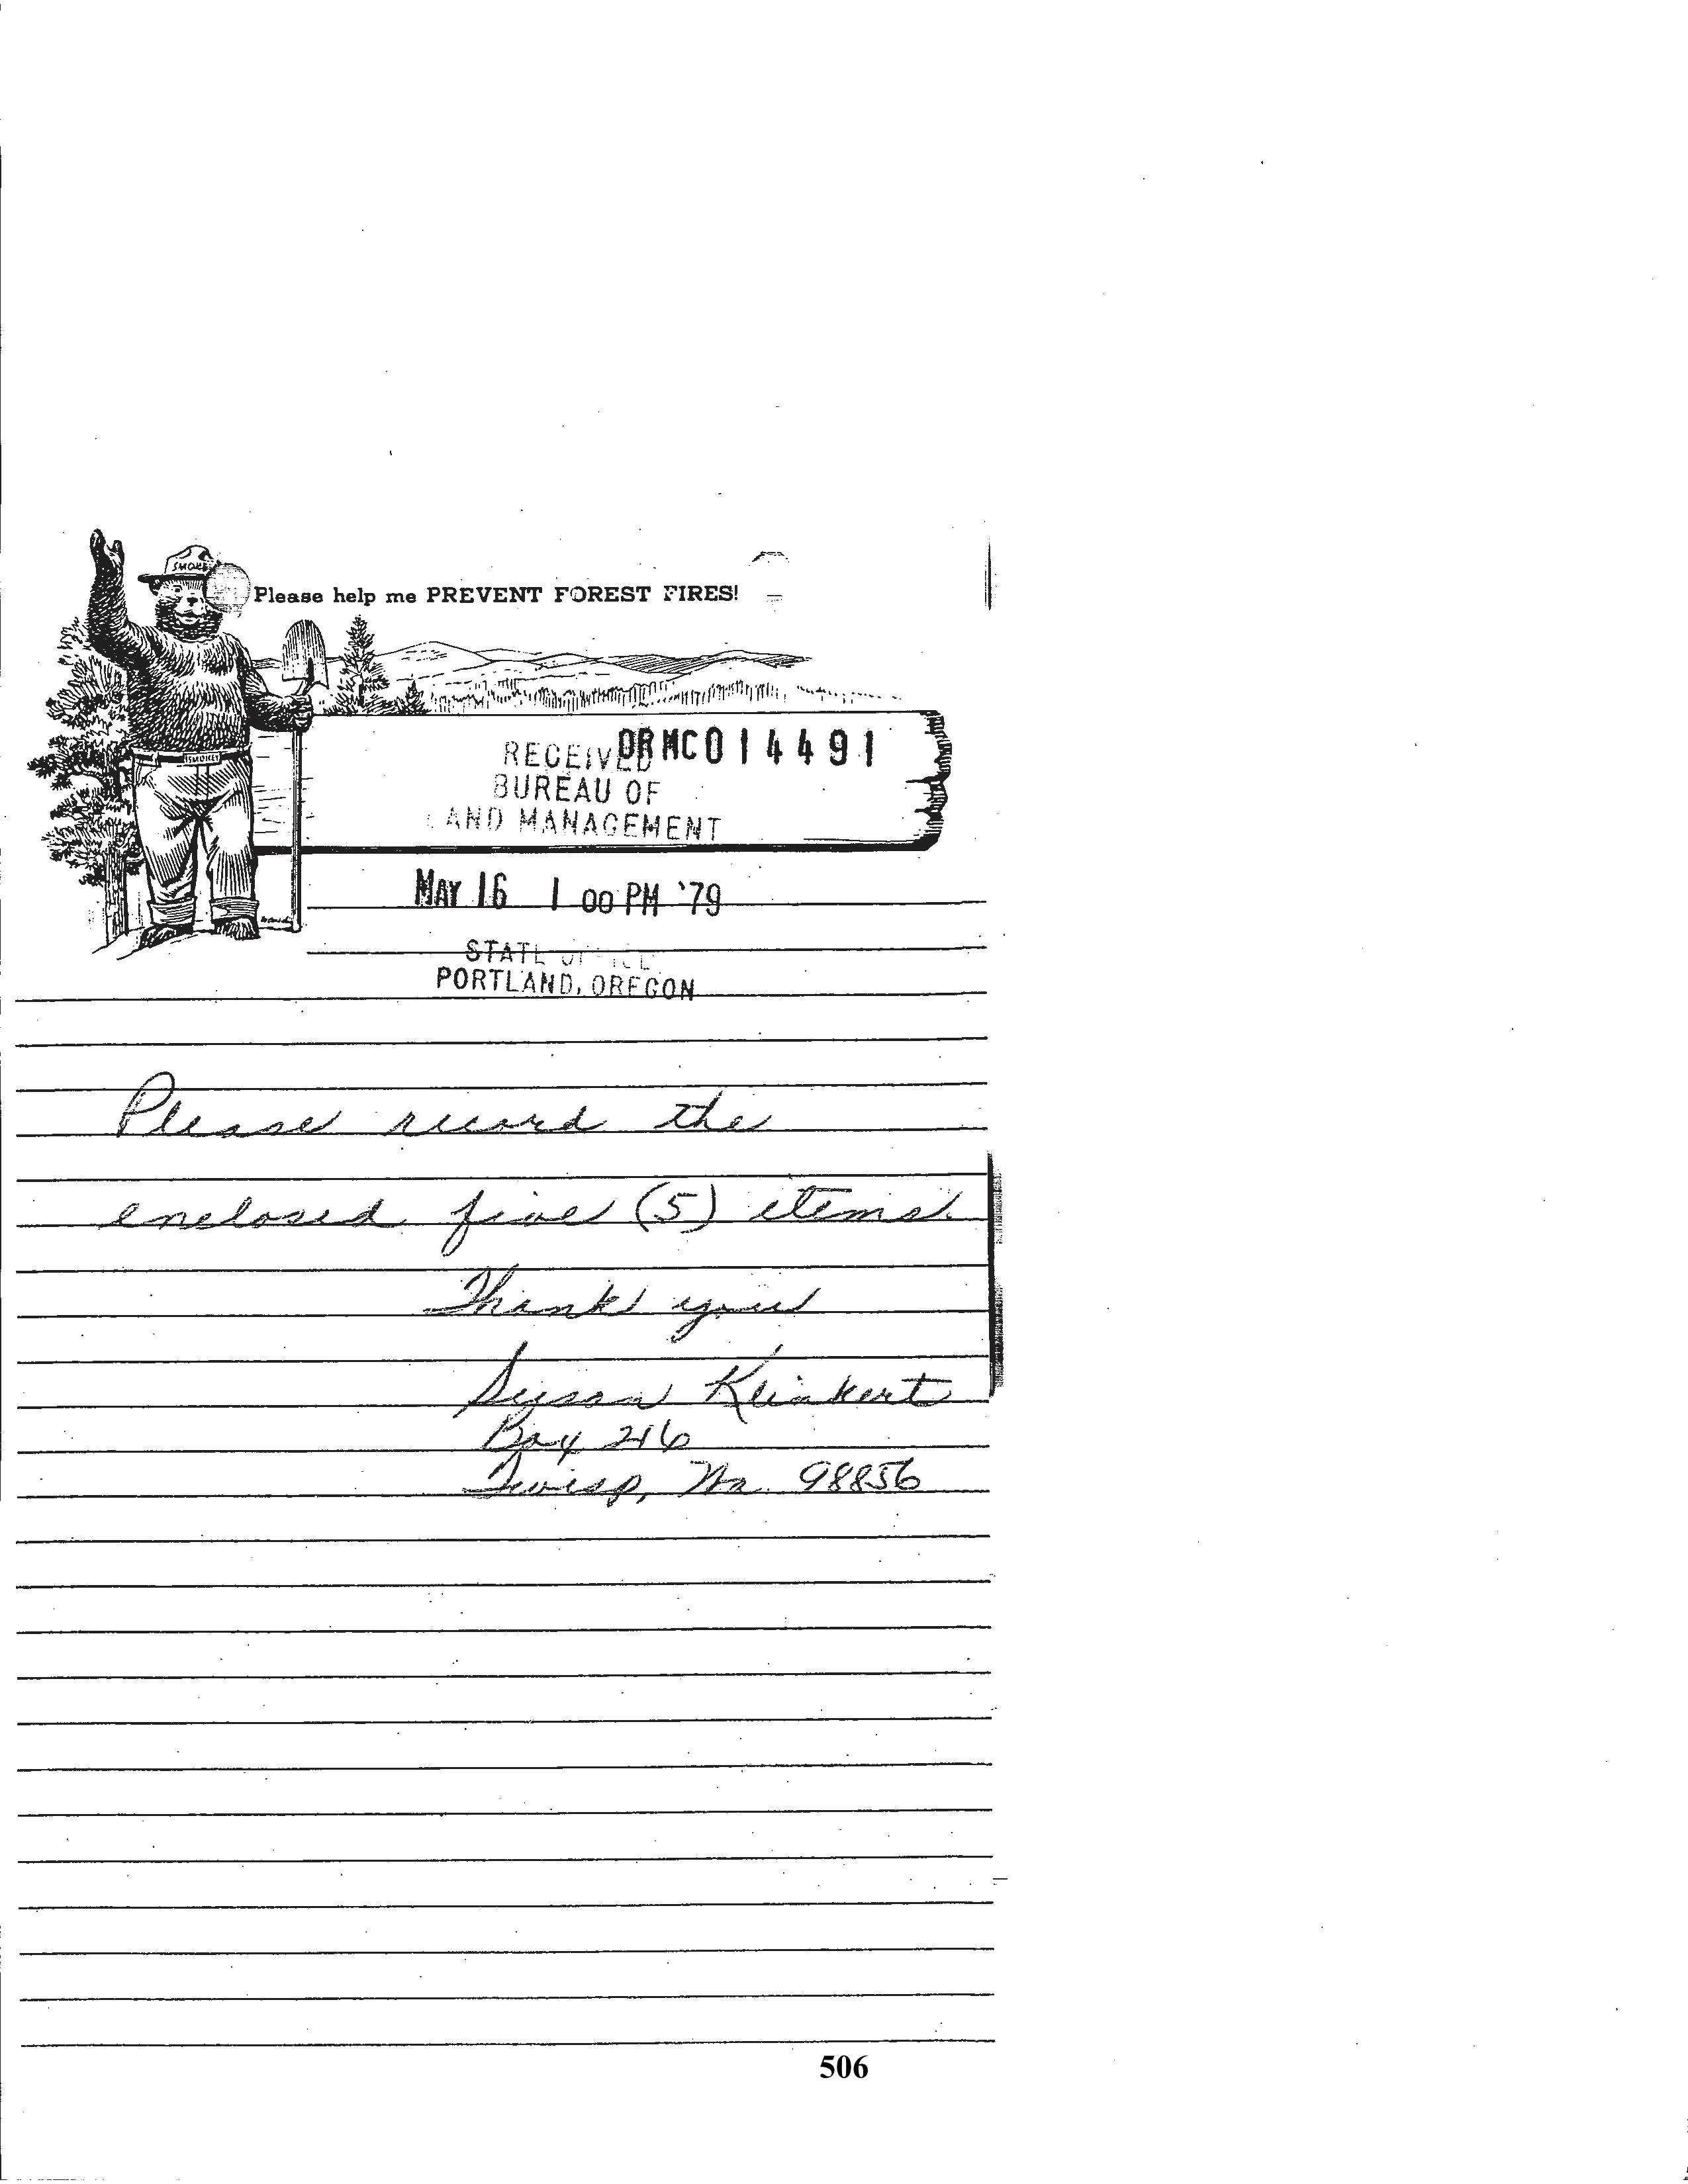 SMOKEY
Please help me PREVENT FOREST FIRES!
ORMC014491
RECEIVED
BUREAU OF
LAND MANAGEMENT
SMOKEY
MAY 16 1 00 PM '79
STATE OFFICE
PORTLAND, OREGON
Please record the
enclosed five (5) items.
Thank you
Susan Kleinkert
Box 216
Twisp, Wa. 98856
506